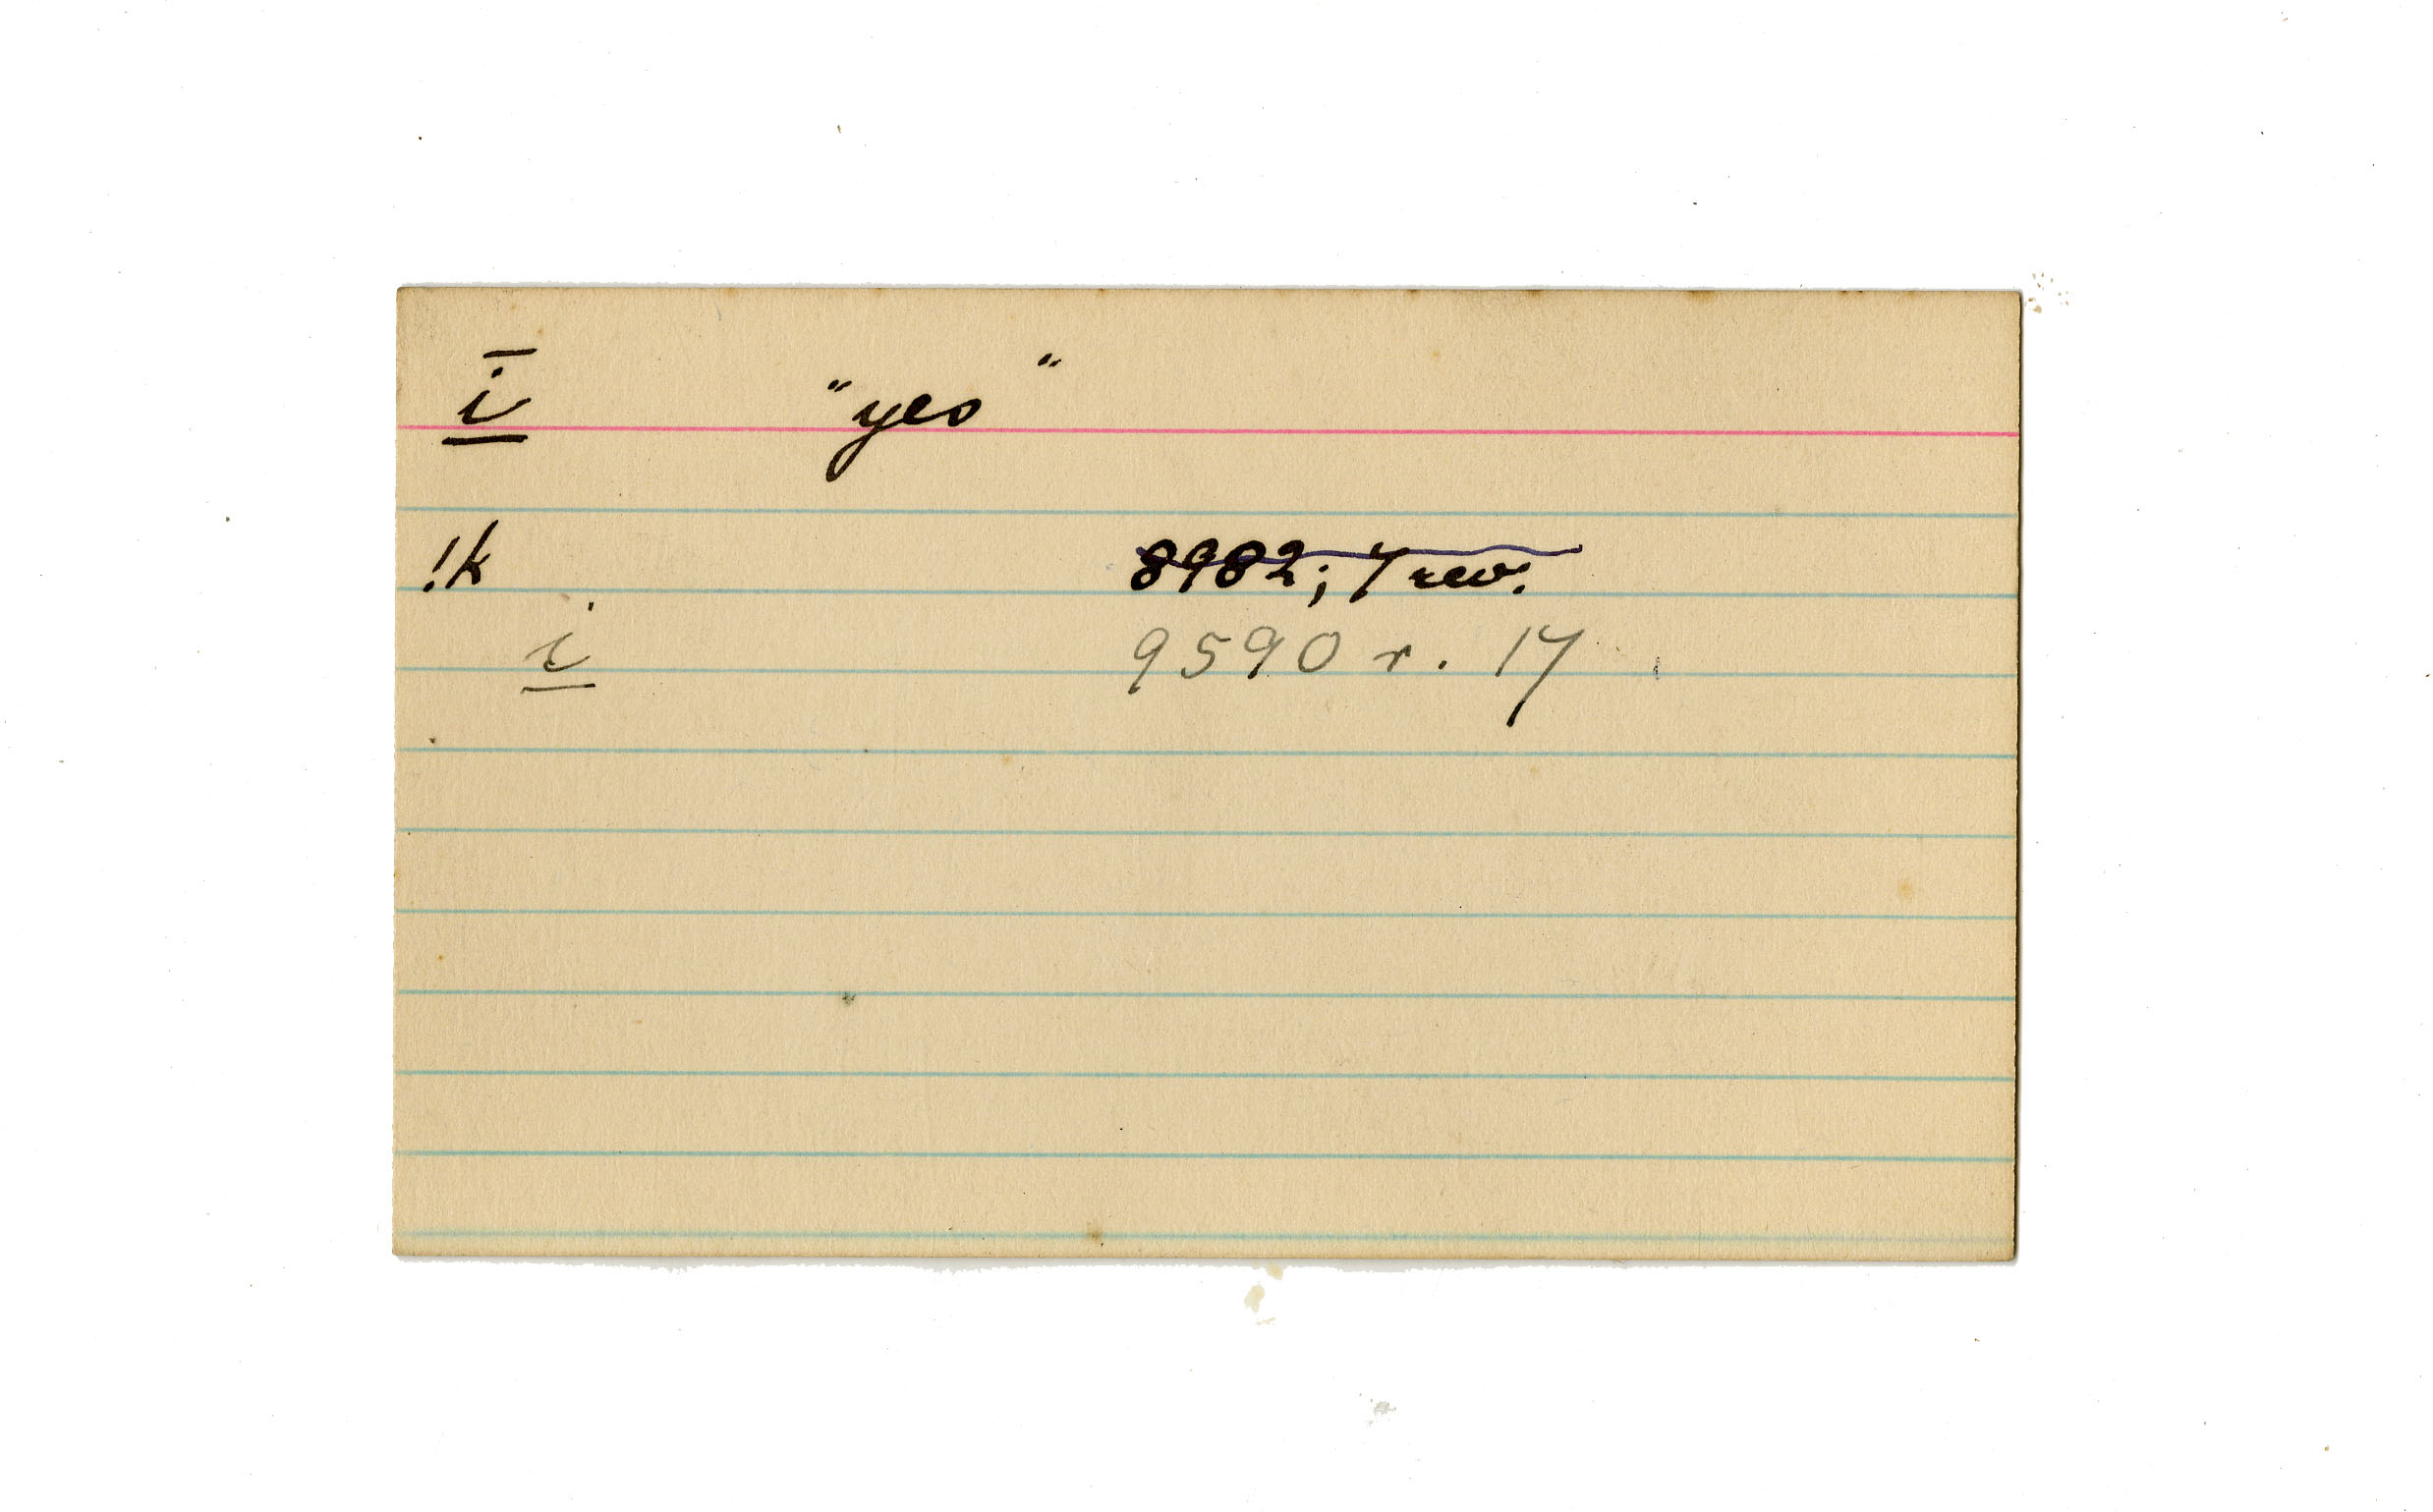 ī "yes"
!k 8982; 7 rev.
i 9590 r. 17